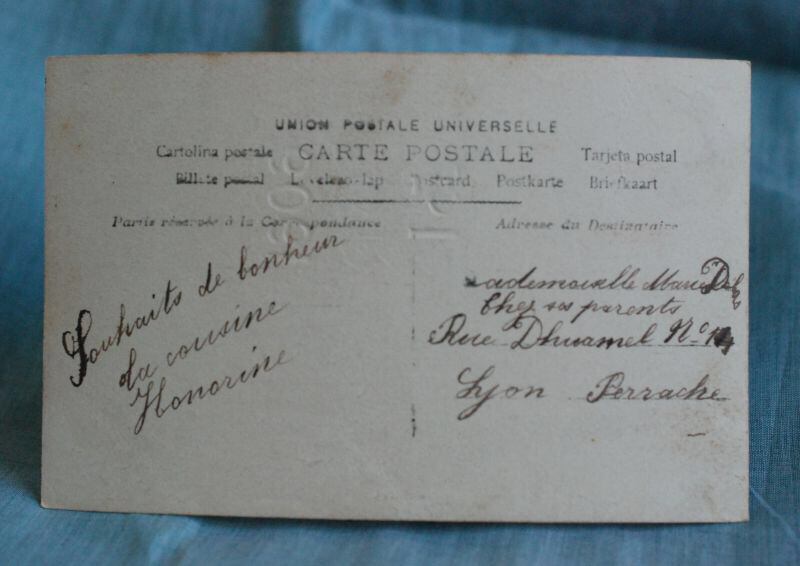 UNION POSTALE UNIVERSELLE
Cartolina postale CARTE POSTALE Tarjeta postal
Postkarte Briefkaart
Partie réservée à la Correspondance
Adresse du Destinataire
Souhaits de bonheur
da cousine
Honorine
ademoiselle Marie
Chez ses parents
Rue Dhuamel No
Lyon Perrache